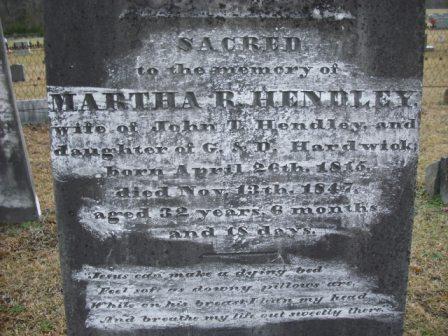 SACRED
to the memory of
MARTHA R. HENDLEY,
wife of John T. Hendley, and
daughter of G. & D. Hardwick,
born April 26th, 1815,
died Nov. 13th, 1847,
aged 32 years, 6 months
and 18 days.
Jesus can make a dying bed
Feel soft as downy pillows are
While on his breast I lean my head
And breathe my life out sweetly there